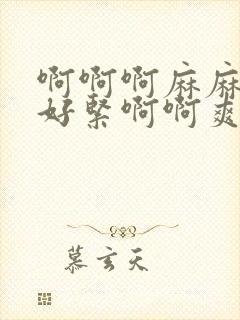 啊啊啊麻麻
好緊啊啊爽
慕玄天